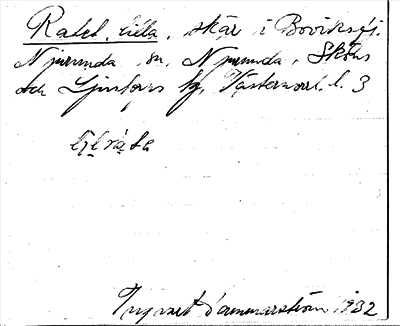 Ratet, lilla, skär i Boviksgs.
Njurunda sn, Njurunda, Sköns
och Ljustorps tg, Västernorrl. l. 3
Ingvart Hammarström 1932